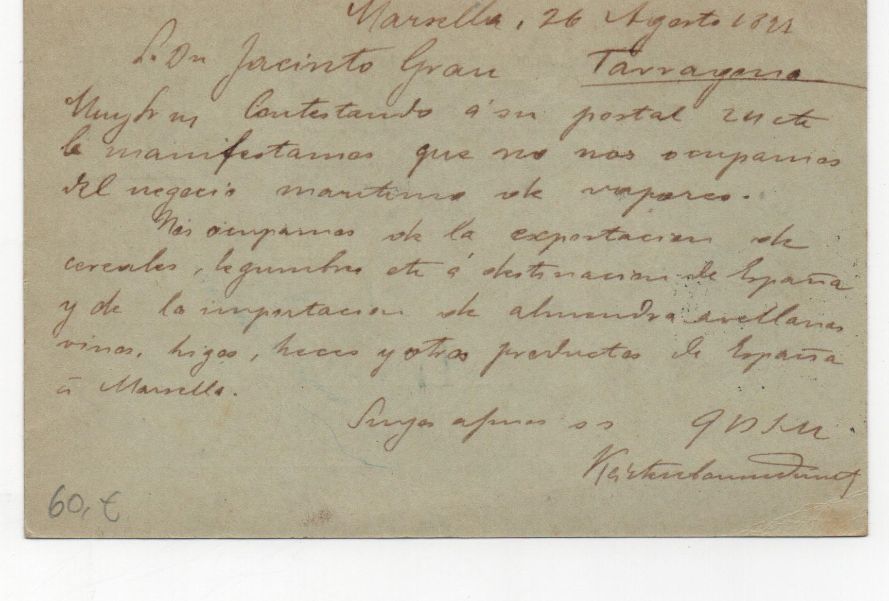 Marsella, 26 Agosto 1891
S. Dn Jacinto Grau Tarragona
Muy Sr ns Contestando á su postal 24 cte
le manifestamos que no nos ocupamos
del negocio maritimo de vapores.
Nos ocupamos de la exportacion de
cereales, legumbres etc á destinacion de España
y de la importacion de almendra avellanas
vinos, higos, heces y otros productos de España
á Marsella.
Suyos afmos s s Q B S M
60,€